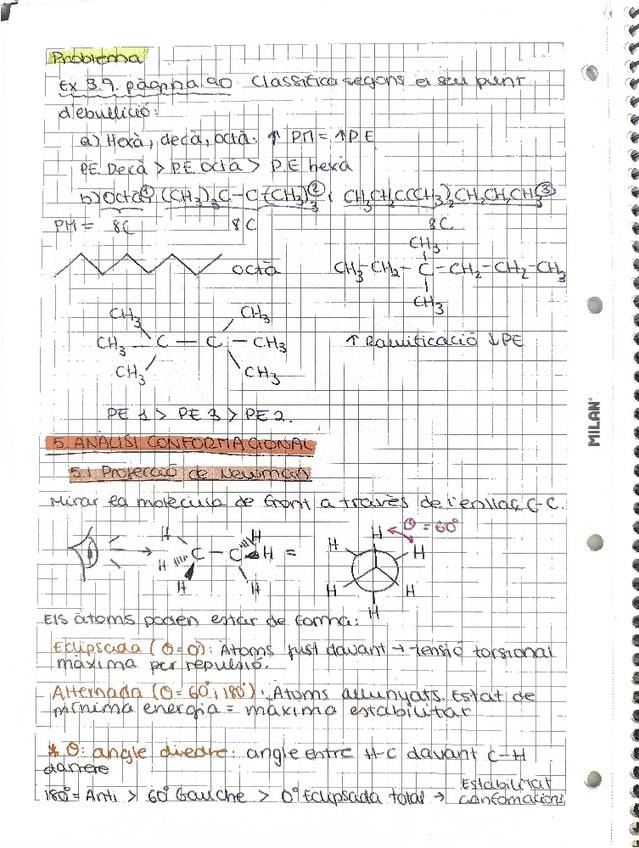 Problema
Ex 3.9. pàgina 90 Classifica segons el seu punt
d'ebullició:
a) Hexà, decà, octà. ↑ PM = ↑ PE
PE. Decà > PE. octà > P.E hexà
b) Octà ① (CH₃)₃C-C-(CH₃)₃ ② i CH₃CH₂C(CH₃)₂CH₂CH₂CH₃ ③
PM = 8C 8C 8C
octà
CH₃
CH₃-CH₂-C-CH₂-CH₂-CH₃
CH₃
CH₃ CH₃
CH₃ - C - C - CH₃
CH₃ CH₃
↑ Ramificació ↓ PE
PE 1 > PE 3 > PE 2.
5. ANÀLISI CONFORMACIONAL
5.1 Projecció de Newman
Mirar la molècula de front a través de l'enllaç C-C.
H H H C - C H H H =
H θ = 60°
H H
H H
H
Els àtoms poden estar de forma:
Eclipsada (θ = 0): Àtoms just davant → tensió torsional
màxima per repulsió.
Alternada (θ = 60° i 180°). Àtoms allunyats. Estat de
mínima energia = màxima estabilitat
* θ: angle díedre: angle entre H-C davant C-H
darrere
180° = Anti > 60° Gauche > 0° Eclipsada total → Estabilitat
conformacions
MILAN